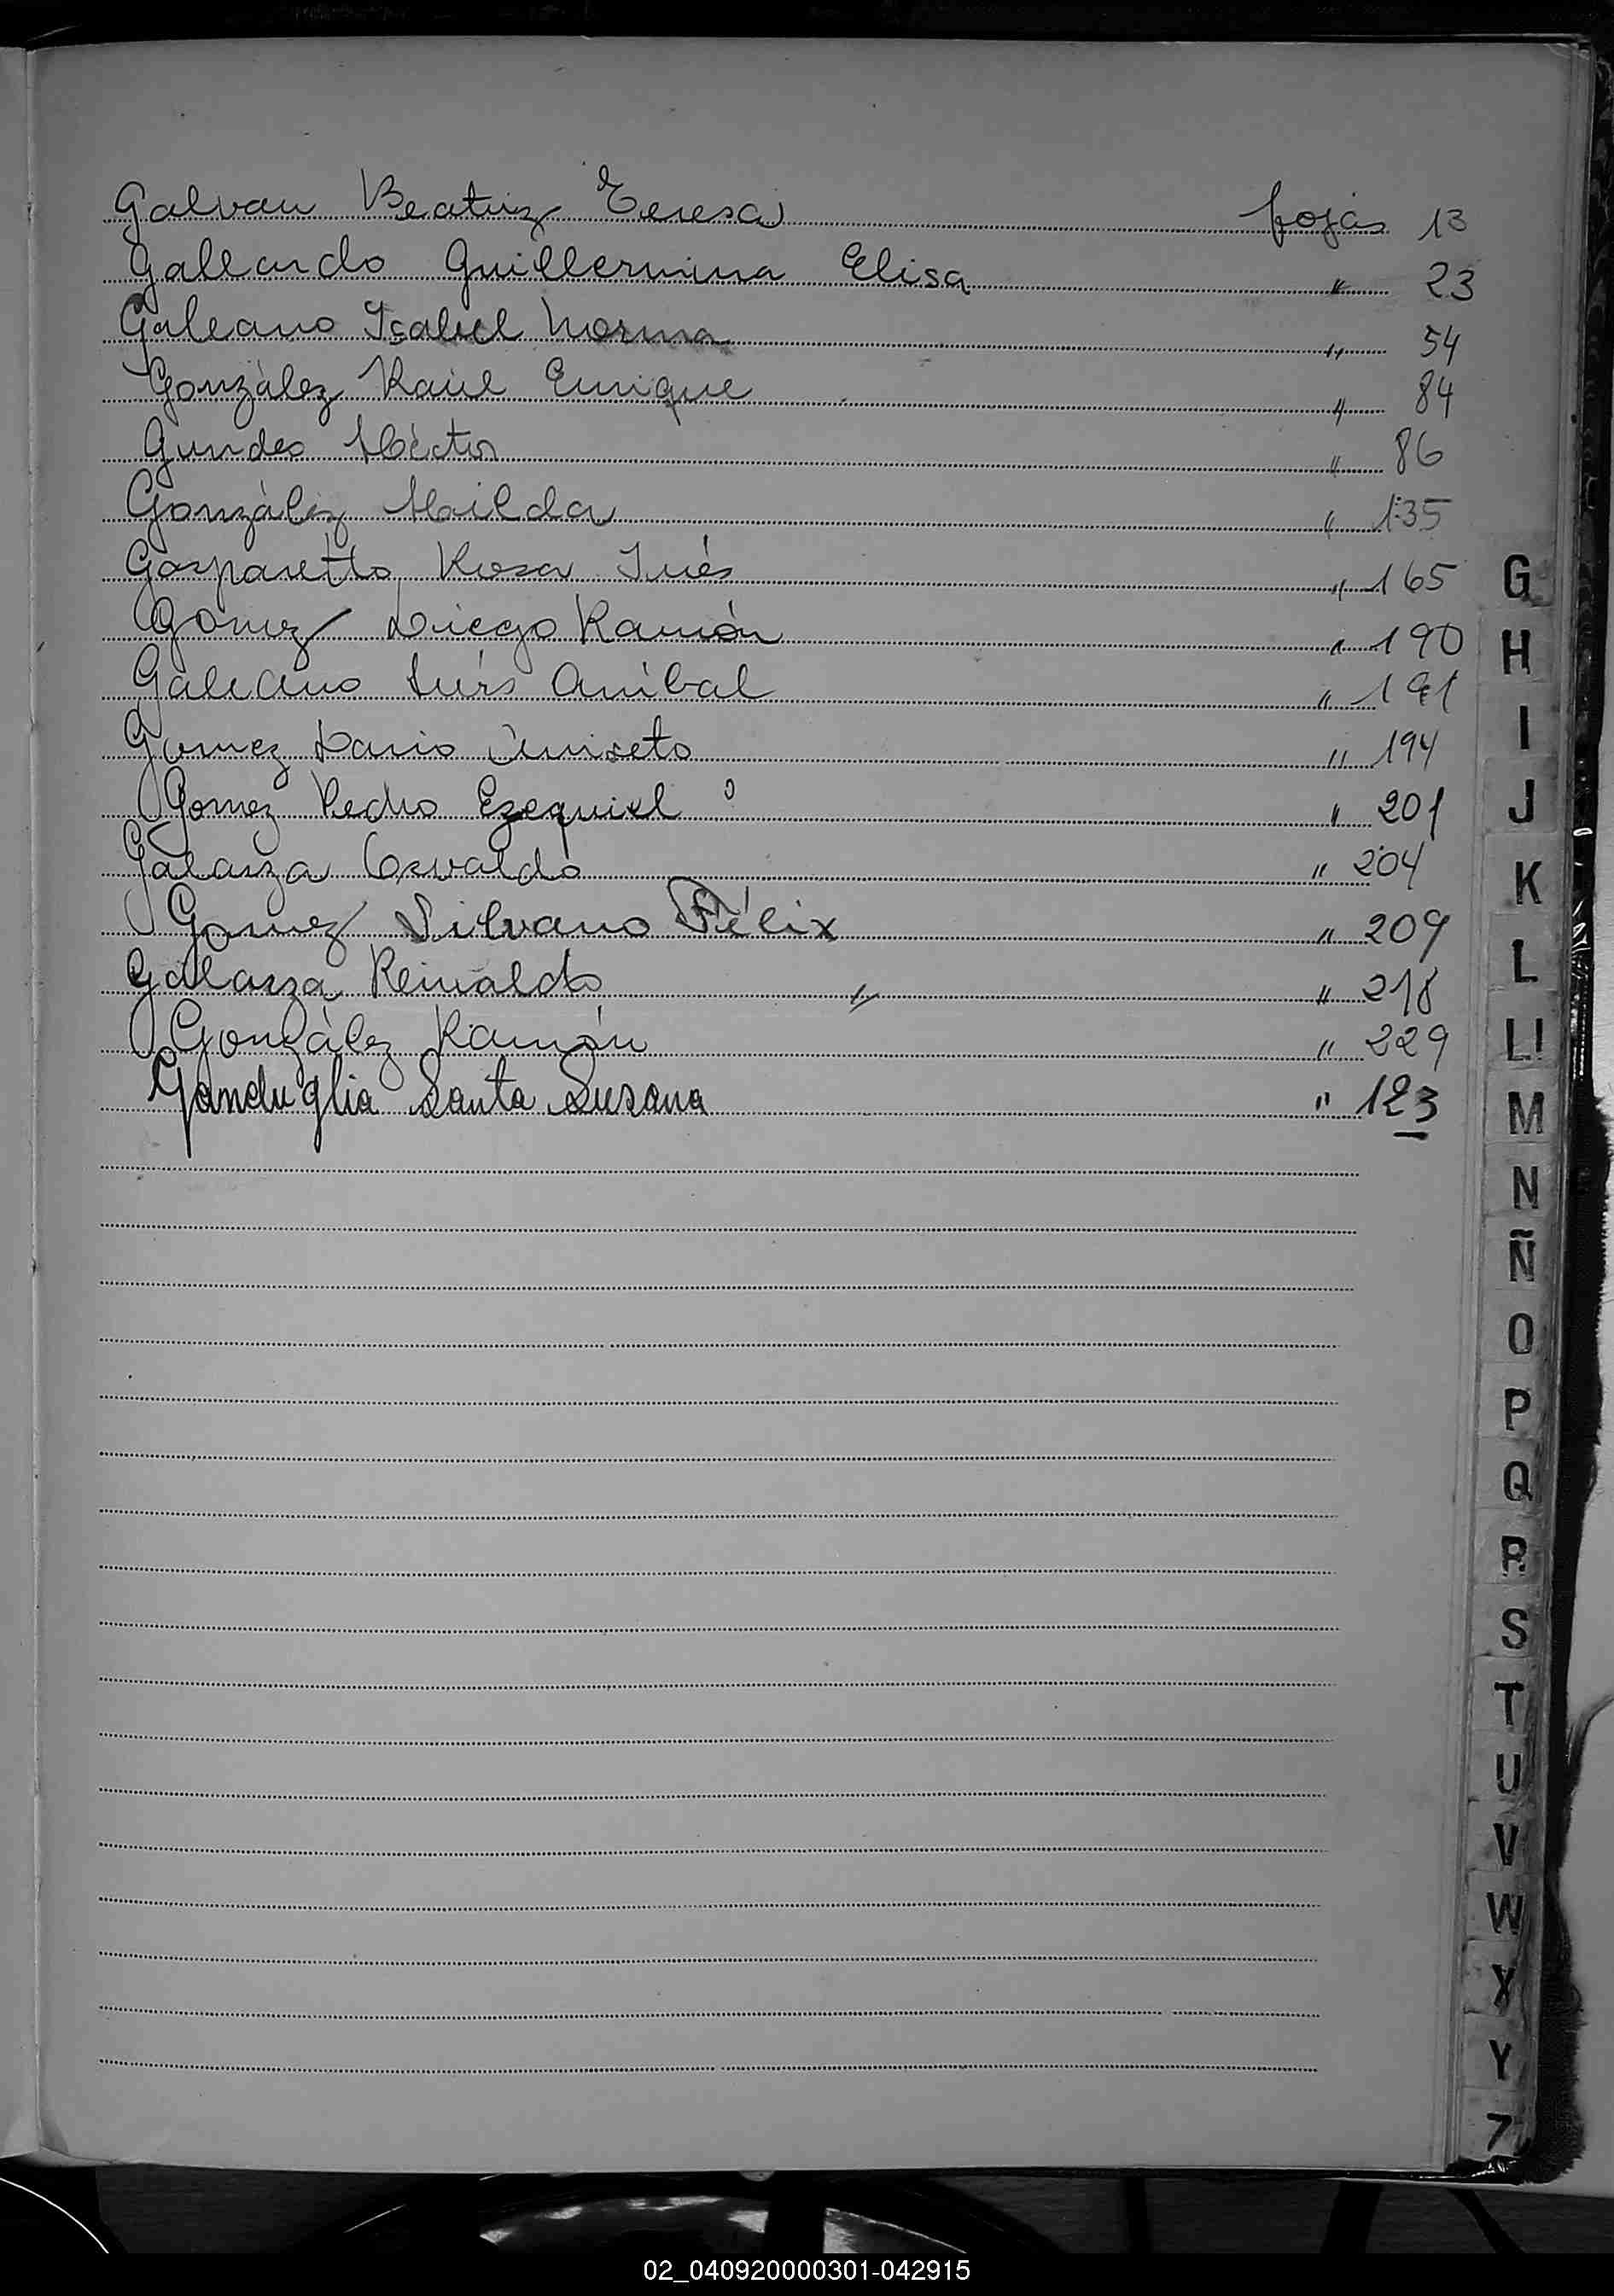 Galvan Beatriz Teresa fojas 13
Gallardo Guillermina Elisa " 23
Galeano Isabel Norma " 54
Gonzàlez Raùl Enrique " 84
Hèctor " 86
Gonzàlez Hilda " 135
Gasparetto Rosa Inés " 165
Gomez Diego Ramón " 190
Galeano Luis Anibal " 191
Gomez Dario " 194
Gomez Pedro Ezequiel " 201
Galarza Osvaldo " 204
Gomez Silvano Félix " 209
Galarza Reinaldo " 218
Gonzàlez Ramón " 229
Ganduglia Santa Susana " 123
G
H
I
J
K
L
Ll
M
N
Ñ
O
P
Q
R
S
T
U
V
W
X
Y
Z
02_040920000301-042915